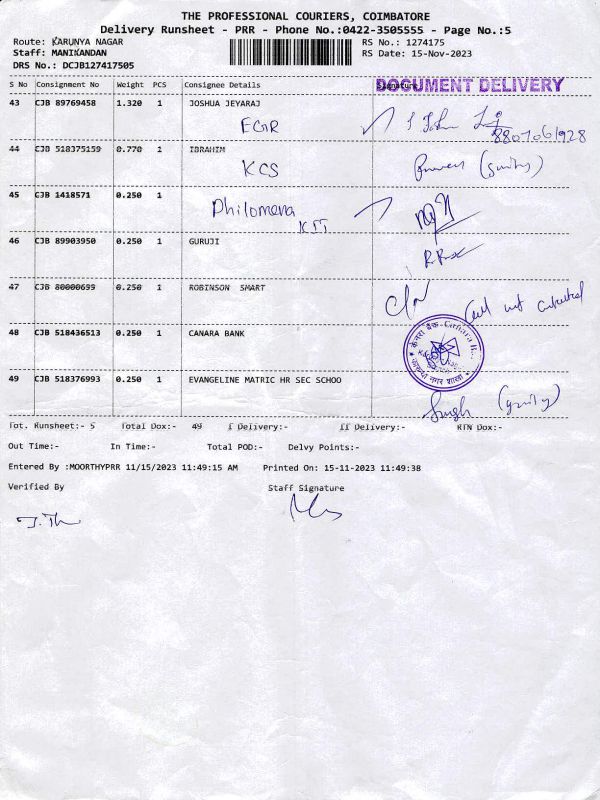 THE PROFESSIONAL COURIERS, COIMBATORE
Delivery Runsheet - PRR - Phone No.:0422-3505555 - Page No.:5
Route: KARUNYA NAGAR RS No.: 1274175
Staff: MANIKANDAN RS Date: 15-Nov-2023
DRS No.: DCJB127417505
S No Consignment No Weight PCS Consignee Details Signature
DOCUMENT DELIVERY
43 CJB 89769458 1.320 1 JOSHUA JEYARAJ
EGR
8807061928
44 CJB 518375159 0.770 1 IBRAHIM
KCS
45 CJB 1418571 0.250 1
Philomena
46 CJB 89903950 0.250 1 GURUJI
47 CJB 80000699 0.250 1 ROBINSON SMART
not
48 CJB 518436513 0.250 1 CANARA BANK
केनरा बैंक Canara
नगर शाखा
49 CJB 518376993 0.250 1 EVANGELINE MATRIC HR SEC SCHOO
Tot. Runsheet:- 5 Total Dox:- 49 I Delivery:- II Delivery:- RTN Dox:-
Out Time:- In Time:- Total POD:- Delvy Points:-
Entered By :MOORTHYPRR 11/15/2023 11:49:15 AM Printed On: 15-11-2023 11:49:38
Verified By Staff Signature